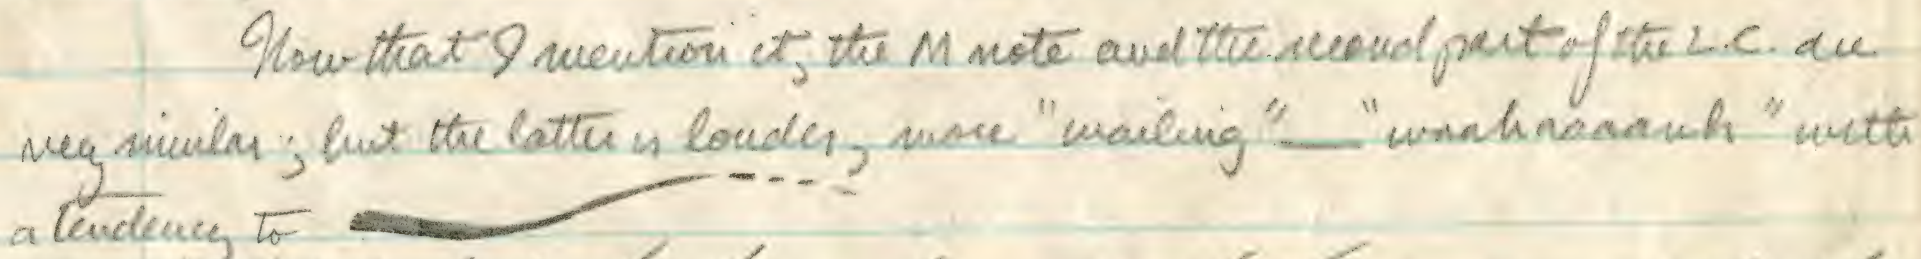 Now that I mention it, the M note and the second part of the L.C. are
very similar; but the latter is louder, more "wailing" — "waahaaaauh" with
a tendency to